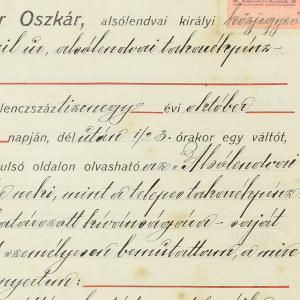 r Oszkár, alsólendvai királyi közjegyző
úr, alsólendvai takarékpénz-
lenczszáz tizenegy évi október
napján, dél után 1/2 3. órakor egy váltót,
ulsó oldalon olvasható az "Alsólendvai
neki, mint a telepes takarékpénz
határozott kívánságára - saját
személyesen bemutattam, a mire
nyertem: